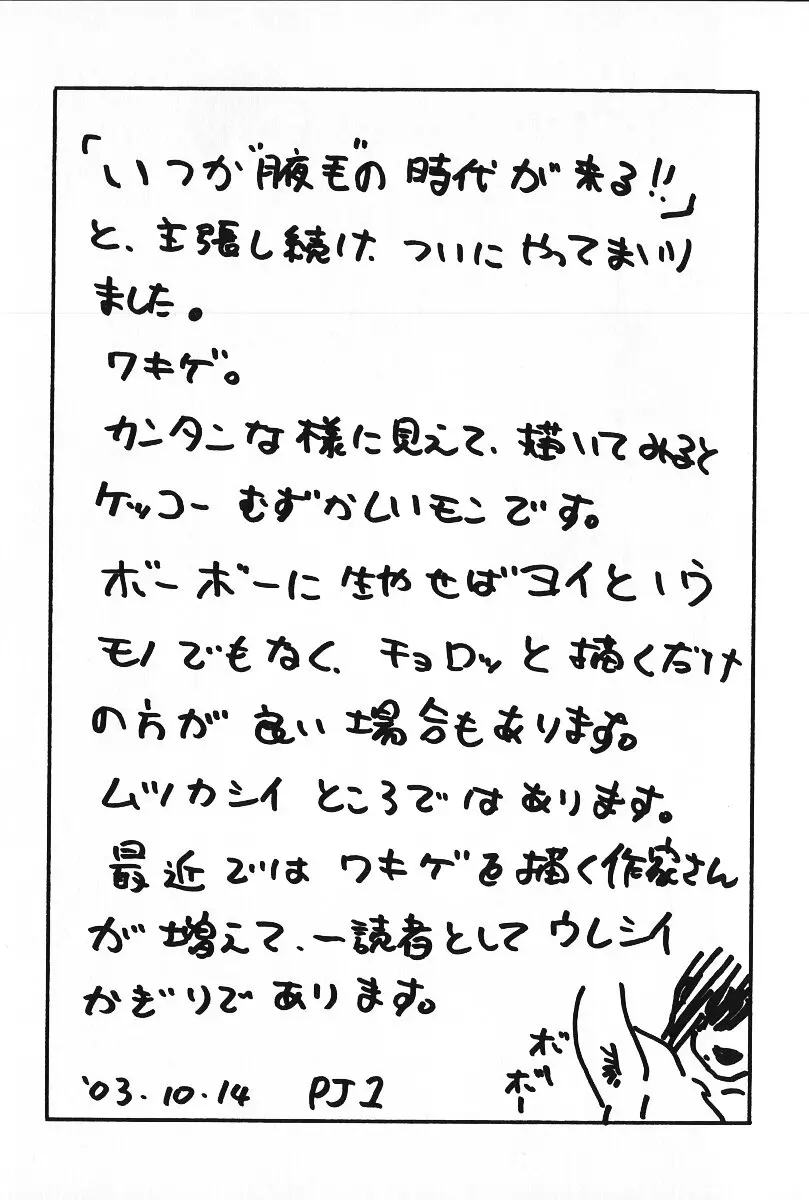 「いつか"腋毛"の時代が来る!!」
と、主張し続け、ついにやってまいり
ました。
ワキゲ。
カンタンな様に見えて、描いてみると
ケッコーむずかしいモンです。
ボーボーに生やせばヨイという
モノでもなく、チョロッと描くだけ
の方が良い場合もあります。
ムツカシイところではあります。
最近ではワキゲを描く作家さん
が増えて、一読者としてウレシイ
かぎりであります。
ボ
ボー
'03.10.14 PJ1